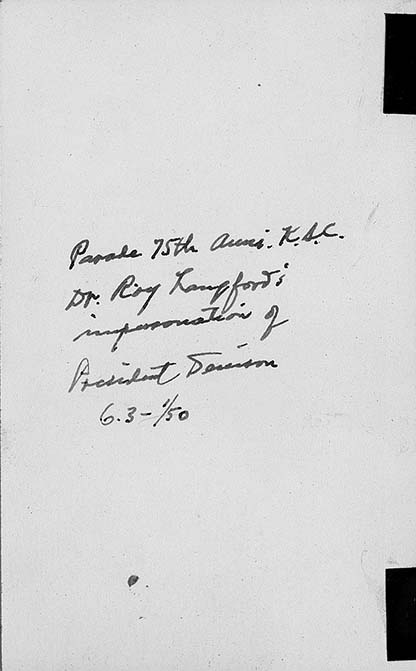 Parade 75th Anni. K.S.C.
Dr. Roy Langford's
impersonation of
President Denison
6.3-1/50